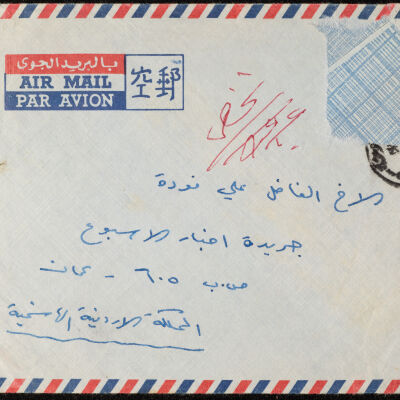 بالبريد الجوى
AIR MAIL
PAR AVION
空郵
الاخ الفاضل علي فودة
جريدة اخبار الاسبوع
ص.ب ٦٠٥ - عمان
المملكة الاردنية الهاشمية